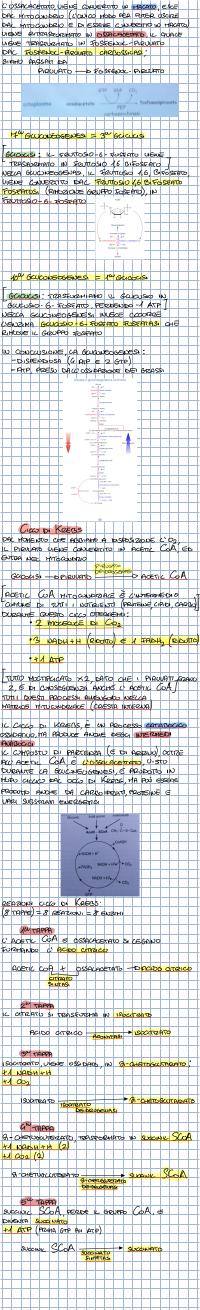 L'OSSALACETATO VIENE CONVERTITO IN MALATO, ESCE
DAL MITOCONDRIO (L'UNICO MODO PER POTER USCIRE
DAL MITOCONDRIO È DI ESSERE CONVERTITO IN MALATO)
VIENE RITRASFORMATO IN OSSALACETATO, IL QUALE
VIENE TRASFORMATO IN FOSFENOL-PIRUVATO
DAL FOSFENOL-PIRUVATO CARBOSSICHINASI.
SIAMO PASSATI DA
PIRUVATO → FOSFENOL-PIRUVATO
GLUCONEOGENESI = 3ª GLICOLISI
GLICOLISI: IL FRUTTOSIO-6-FOSFATO VIENE
TRASFORMATO IN FRUTTOSIO 1,6 BIFOSFATO
NELLA GLUCONEOGENESI, IL FRUTTOSIO 1,6, BIFOSFATO
VIENE CONVERTITO DAL FRUTTOSIO 1,6 BIFOSFATO
FOSFATASI (RIMOZIONE GRUPPO FOSFATO), IN
FRUTTOSIO-6-FOSFATO
10ª GLUCONEOGENESI = 1ª GLICOLISI
GLICOLISI: TRASFORMIAMO IL GLUCOSIO IN
GLUCOSIO-6-FOSFATO, PERDENDO -1 ATP
NELLA GLUCONEOGENESI INVECE OCCORRE
L'ENZIMA GLUCOSIO-6-FOSFATO FOSFATASI CHE
RIMUOVE IL GRUPPO FOSFATO
IN CONCLUSIONE, LA GLUCONEOGENESI:
-DISPENDIOSA (4 ATP E 2 GTP)
-ATP, PRESI DALL'OSSIDAZIONE DEI GRASSI
CICLO DI KREBS
DAL MOMENTO CHE ABBIAMO A DISPOSIZIONE L'O2,
IL PIRUVATO VIENE CONVERTITO IN ACETIL CoA, ED
ENTRA NEL MITOCONDRIO
PIRUVATO
DEIDROGENASI
GLICOLISI → PIRUVATO → ACETIL CoA
ACETIL CoA MITOCONDRIALE È L'INTERMEDIO
COMUNE DI TUTTI I NUTRIENTI (PROTEINE, LIPIDI, CARBO)
DURANTE QUESTO CICLO OTTENIAMO:
• 2 MOLECOLE DI CO2
• 3 NADH+H (RIDOTTO) E 1 FADH2 (RIDOTTO)
• +1 ATP
TUTTO MOLTIPLICATO X2, DATO CHE I PIRUVATI ERANO
2, E DI CONSEGUENZA ANCHE L'ACETIL CoA
TUTTI QUESTI PROCESSI AVVENGONO NELLA
MATRICE MITOCONDRIALE (CRESTA INTERNA)
IL CICLO DI KREBS, È UN PROCESSO CATABOLICO
OSSIDATIVO, MA PRODUCE ANCHE DEGLI INTERMEDI
ANABOLICI
IL COMPOSTO DI PARTENZA (E DI ARRIVO), OLTRE
ALL'ACETIL CoA, È L'OSSALACETATO, VISTO
DURANTE LA GLUCONEOGENESI, È PRODOTTO IN
MODO CICLICO DAL CICLO DI KREBS, MA PUÒ ESSERE
PRODOTTO ANCHE DA CARBOIDRATI, PROTEINE E
VARI SUBSTRATI ENERGETICI
REAZIONI CICLO DI KREBS:
(8 TAPPE) = 8 REAZIONI = 8 ENZIMI
1ª TAPPA
L'ACETIL CoA E OSSALACETATO SI LEGANO
FORMANDO L'ACIDO CITRICO
ACETIL CoA + OSSALACETATO → ACIDO CITRICO
CITRATO
SINTASI
2ª TAPPA
IL CITRATO SI TRASFORMA IN ISOCITRATO
ACIDO CITRICO → ISOCITRATO
ACONITASI
3ª TAPPA
+1 NADH+H
+1 CO2
ISOCITRATO
DEIDROGENASI
4ª TAPPA
+1 NADH+H (2)
+1 CO2 (2)
DEIDROGENASI
5ª TAPPA
SUCCINIL SCoA, PERDE IL GRUPPO CoA, E
DIVENTA SUCCINATO
SUCCINIL SCoA → SUCCINATO
SUCCINATO